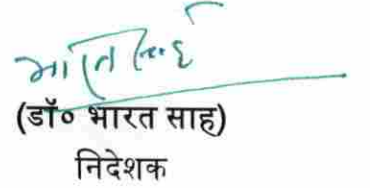 (डॉ० भारत साह)
निदेशक